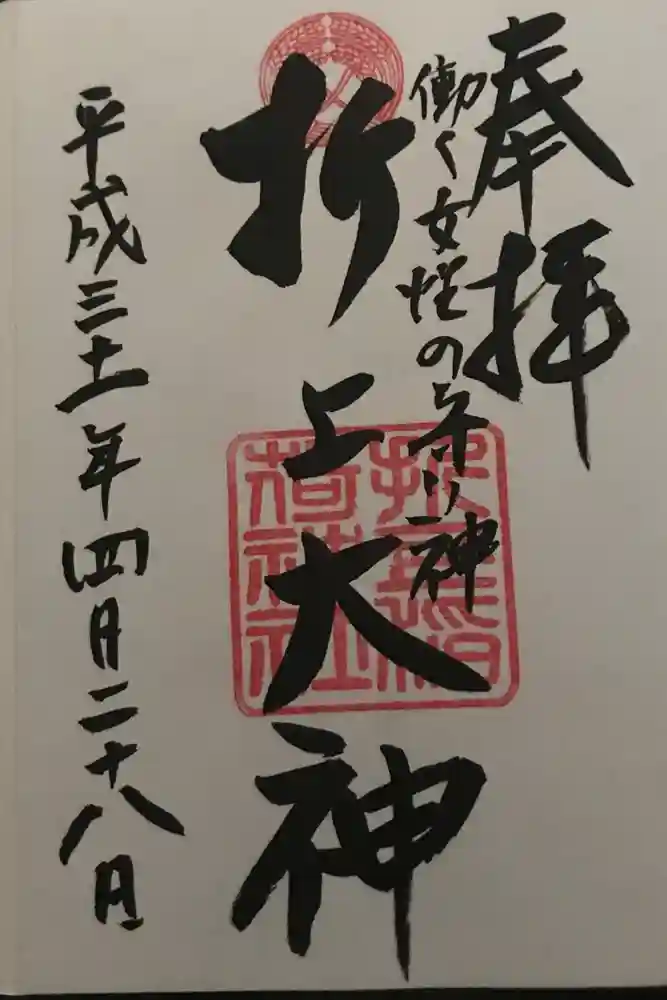 奉拝
働く女性の守り神
折上大神
折上稲荷神社
平成三十一年四月二十八日